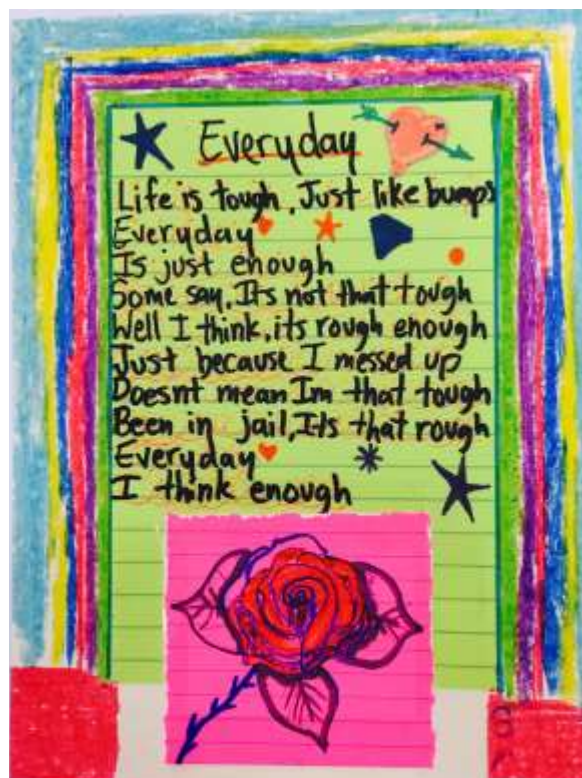 Everyday
Life is tough, Just like bumps
Everyday
Is just enough
Some say, Its not that tough
Well I think, its rough enough
Just because I messed up
Doesnt mean Im that tough
Been in jail, Its that rough
Everyday
I think enough